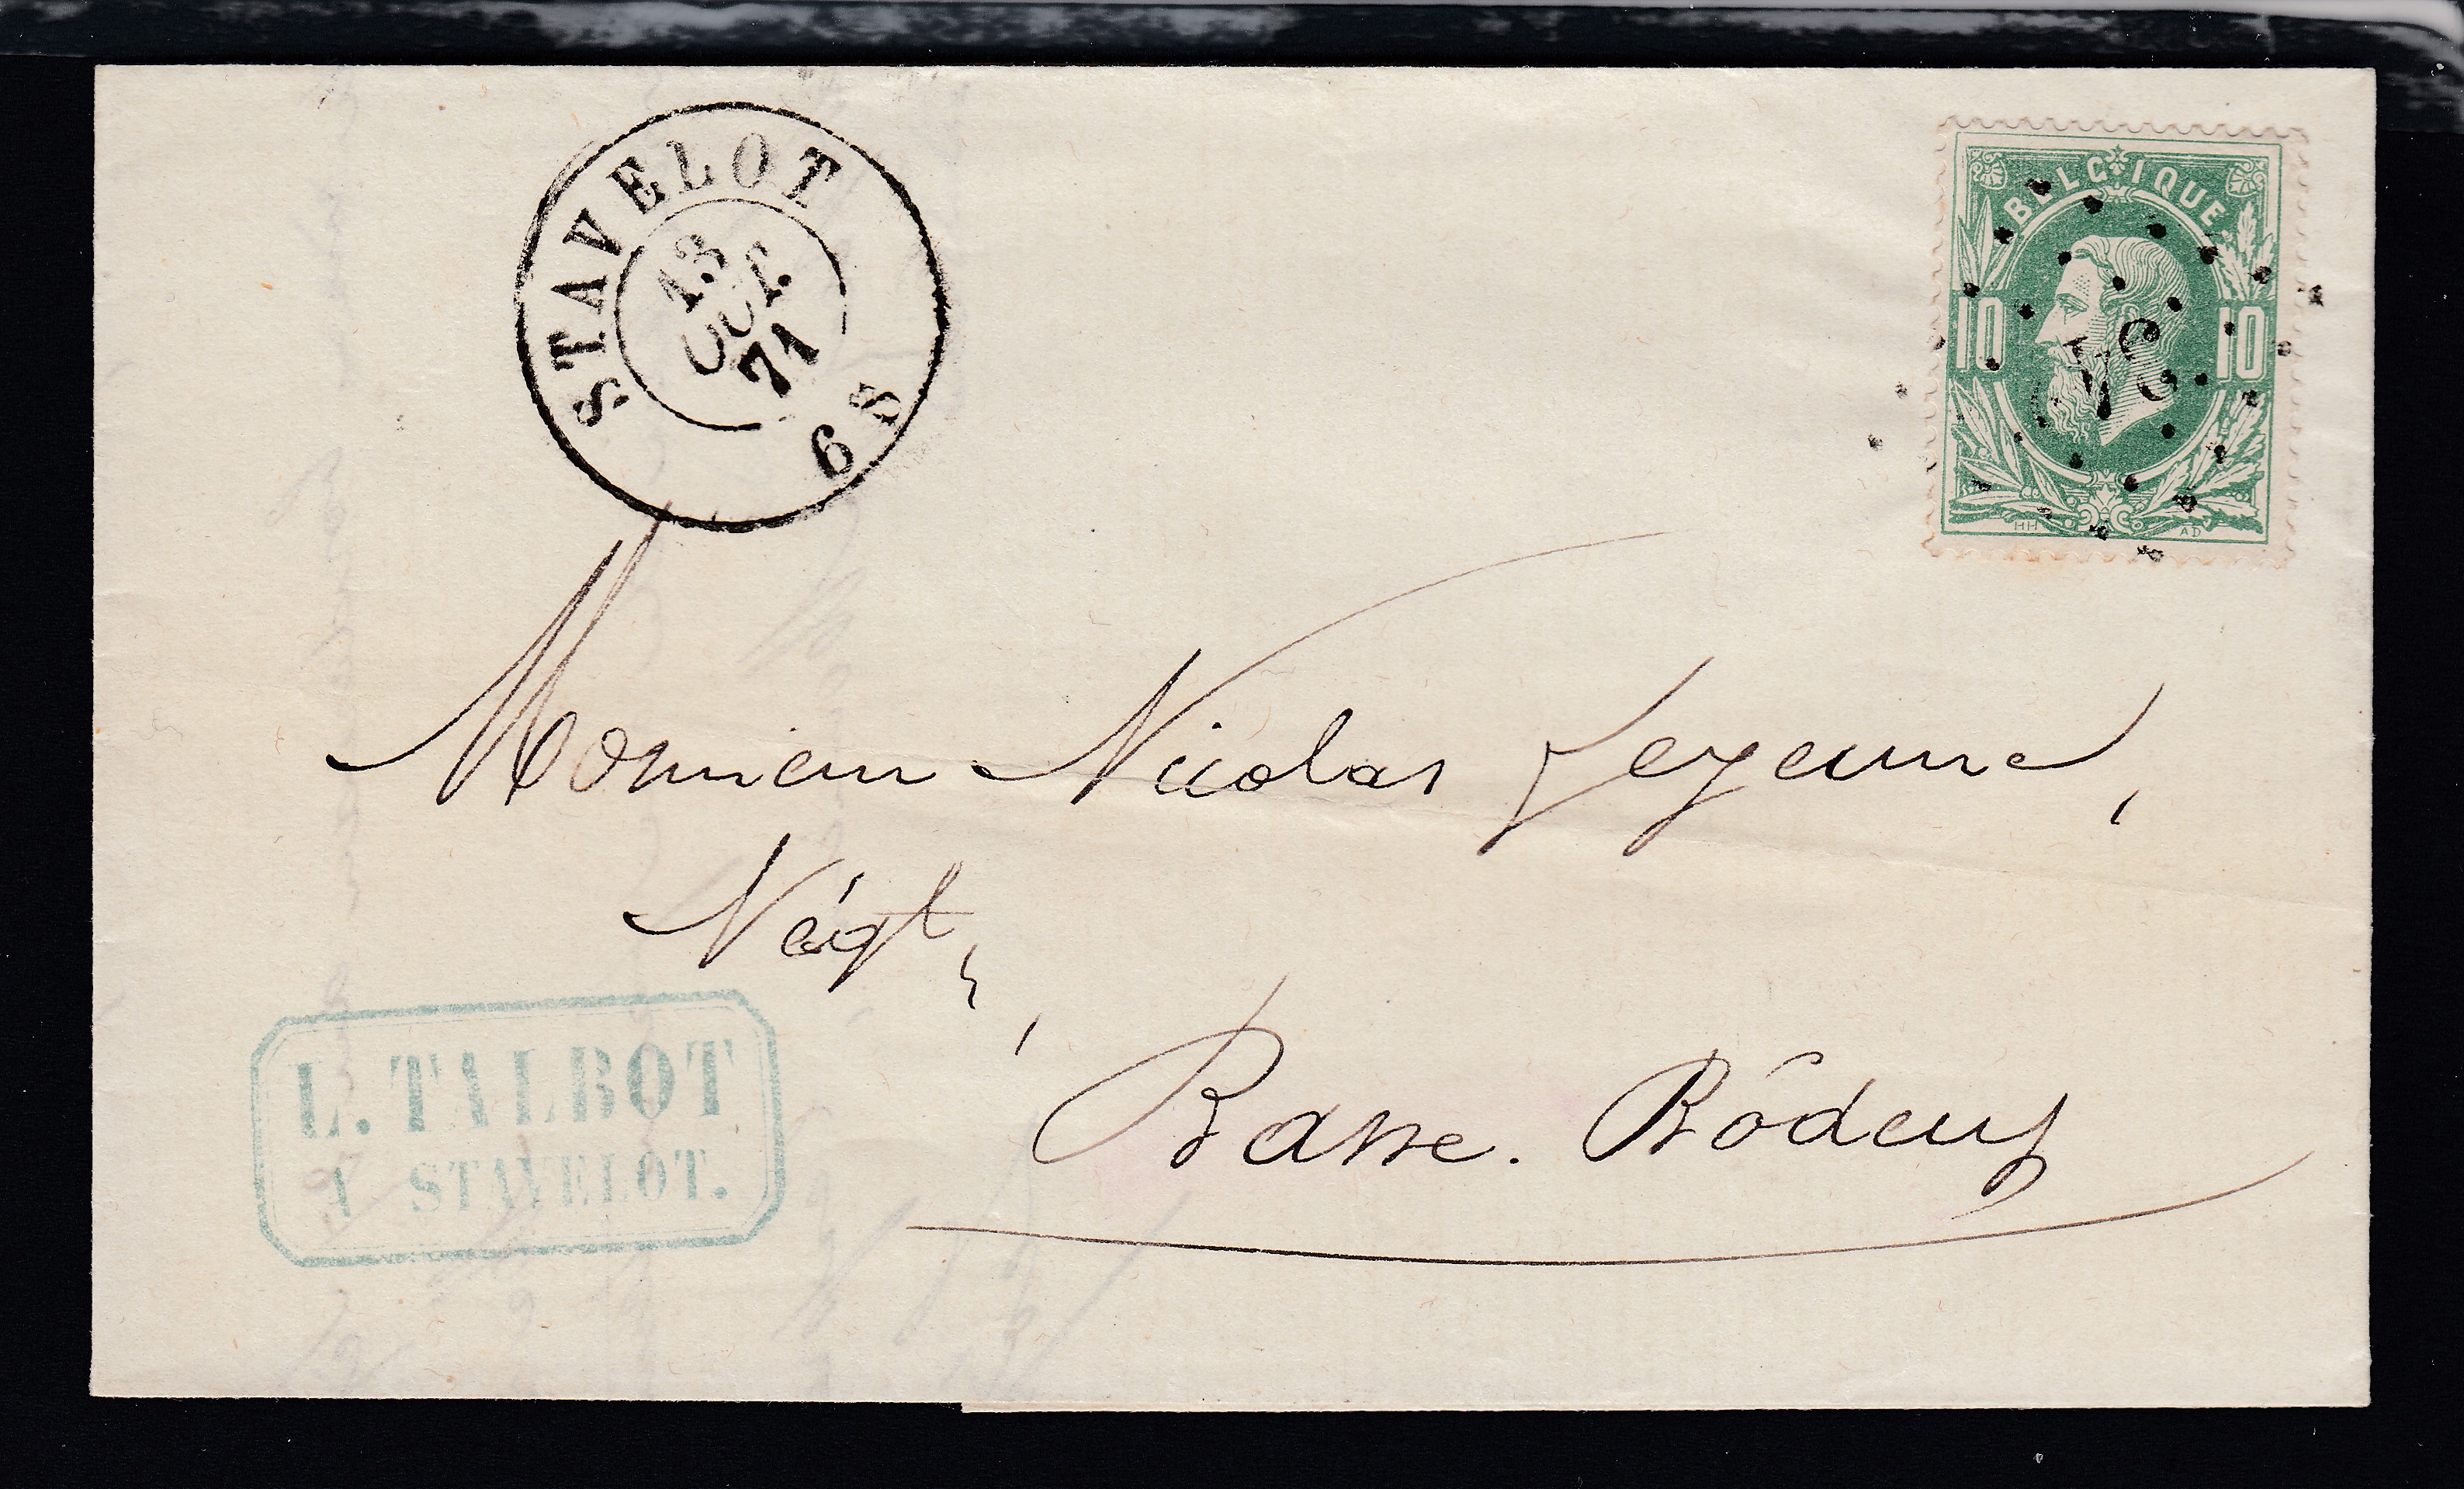 STAVELOT
13
OCT.
71
6 S
BELGIQUE
10 10
HH AD
Monsieur Nicolas Lejeune,
Négt,
Basse. Bôdeux
L. TALBOT
A STAVELOT.